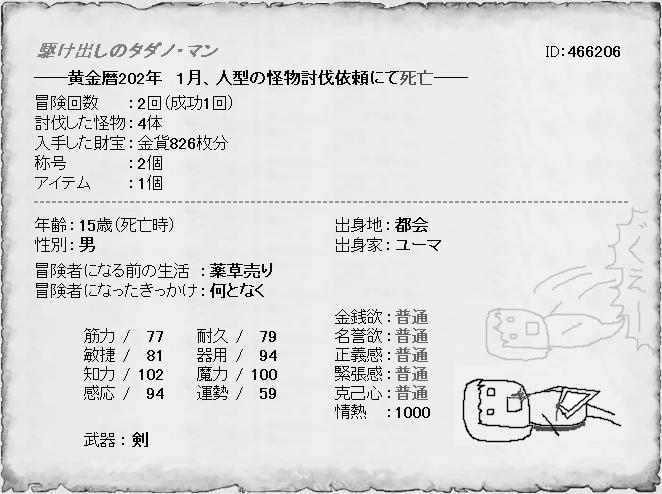 駆け出しのタダノ・マン ID：466206
――黄金暦202年　1月、人型の怪物討伐依頼にて死亡――
冒険回数　：2回（成功1回）
討伐した怪物：4体
入手した財宝：金貨826枚分
称号　：2個
アイテム　：1個
年齢：15歳（死亡時） 出身地：都会
性別：男 出身家：ユーマ
冒険者になる前の生活　：薬草売り
冒険者になったきっかけ：何となく
金銭欲：普通
筋力 / 77 耐久 / 79 名誉欲：普通
敏捷 / 81 器用 / 94 正義感：普通
知力 / 102 魔力 / 100 緊張感：普通
感応 / 94 運勢 / 59 克己心：普通
情熱　：1000
武器：剣
ぐえー